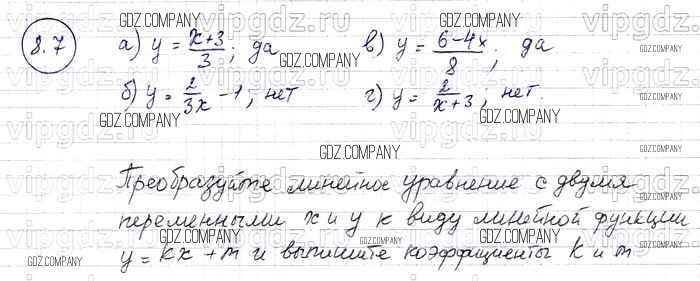 8.7 а) y = (x+3)/3; да в) y = (6-4x)/8; да
б) y = 2/3x - 1; нет г) y = 2/x+3; нет.
Преобразуйте линейное уравнение с двумя
переменными x и y к виду линейной функции
y = kx + m и выпишите коэффициенты k и m
GDZ.COMPANY
vipgdz.ru